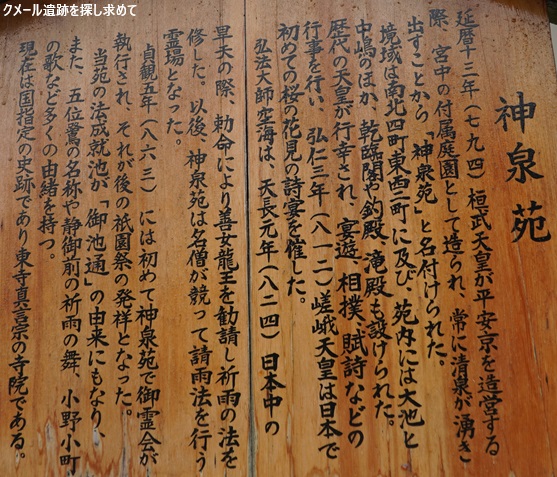 クメール遺跡を探し求めて
神泉苑
延暦十三年（七九四）桓武天皇が平安京を造営する
際、宮中の付属庭園として造られ、常に清泉が湧き
出すことから「神泉苑」と名付けられた。
境域は南北四町東西二町に及び、苑内には大池と
中嶋のほか、乾臨閣や釣殿、滝殿も設けられた。
歴代の天皇が行幸され、宴遊、相撲、賦詩などの
行事を行い、弘仁三年（八一二）嵯峨天皇は日本で
初めての桜の花見の詩宴を催した。
弘法大師空海は、天長元年（八二四）日本中の
旱天の際、勅命により善女龍王を勧請し祈雨の法を
修した。以後、神泉苑は名僧が競って請雨法を行う
霊場となった。
貞観五年（八六三）には初めて神泉苑で御霊会が
執行され、それが後の祇園祭の発祥となった。
当苑の法成就池が「御池通」の由来にもなり、
また、五位鷺の名称や静御前の祈雨の舞、小野小町
の歌など多くの由緒を持つ。
現在は国指定の史跡であり東寺真言宗の寺院である。